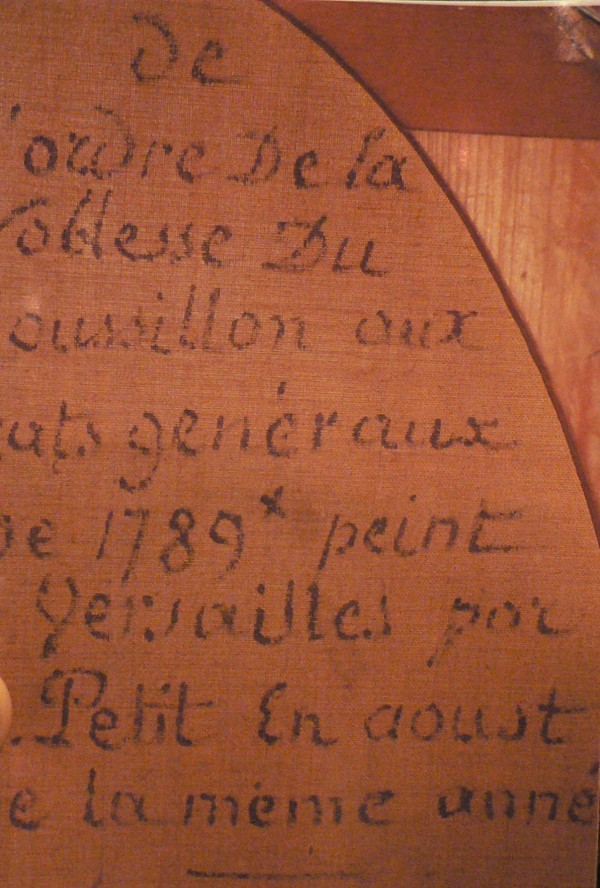 De
l'ordre De la
Noblesse Du
oussillon aux
tats generaux
De 1789 x peint
Versailles par
. Petit En aoust
e la même anné